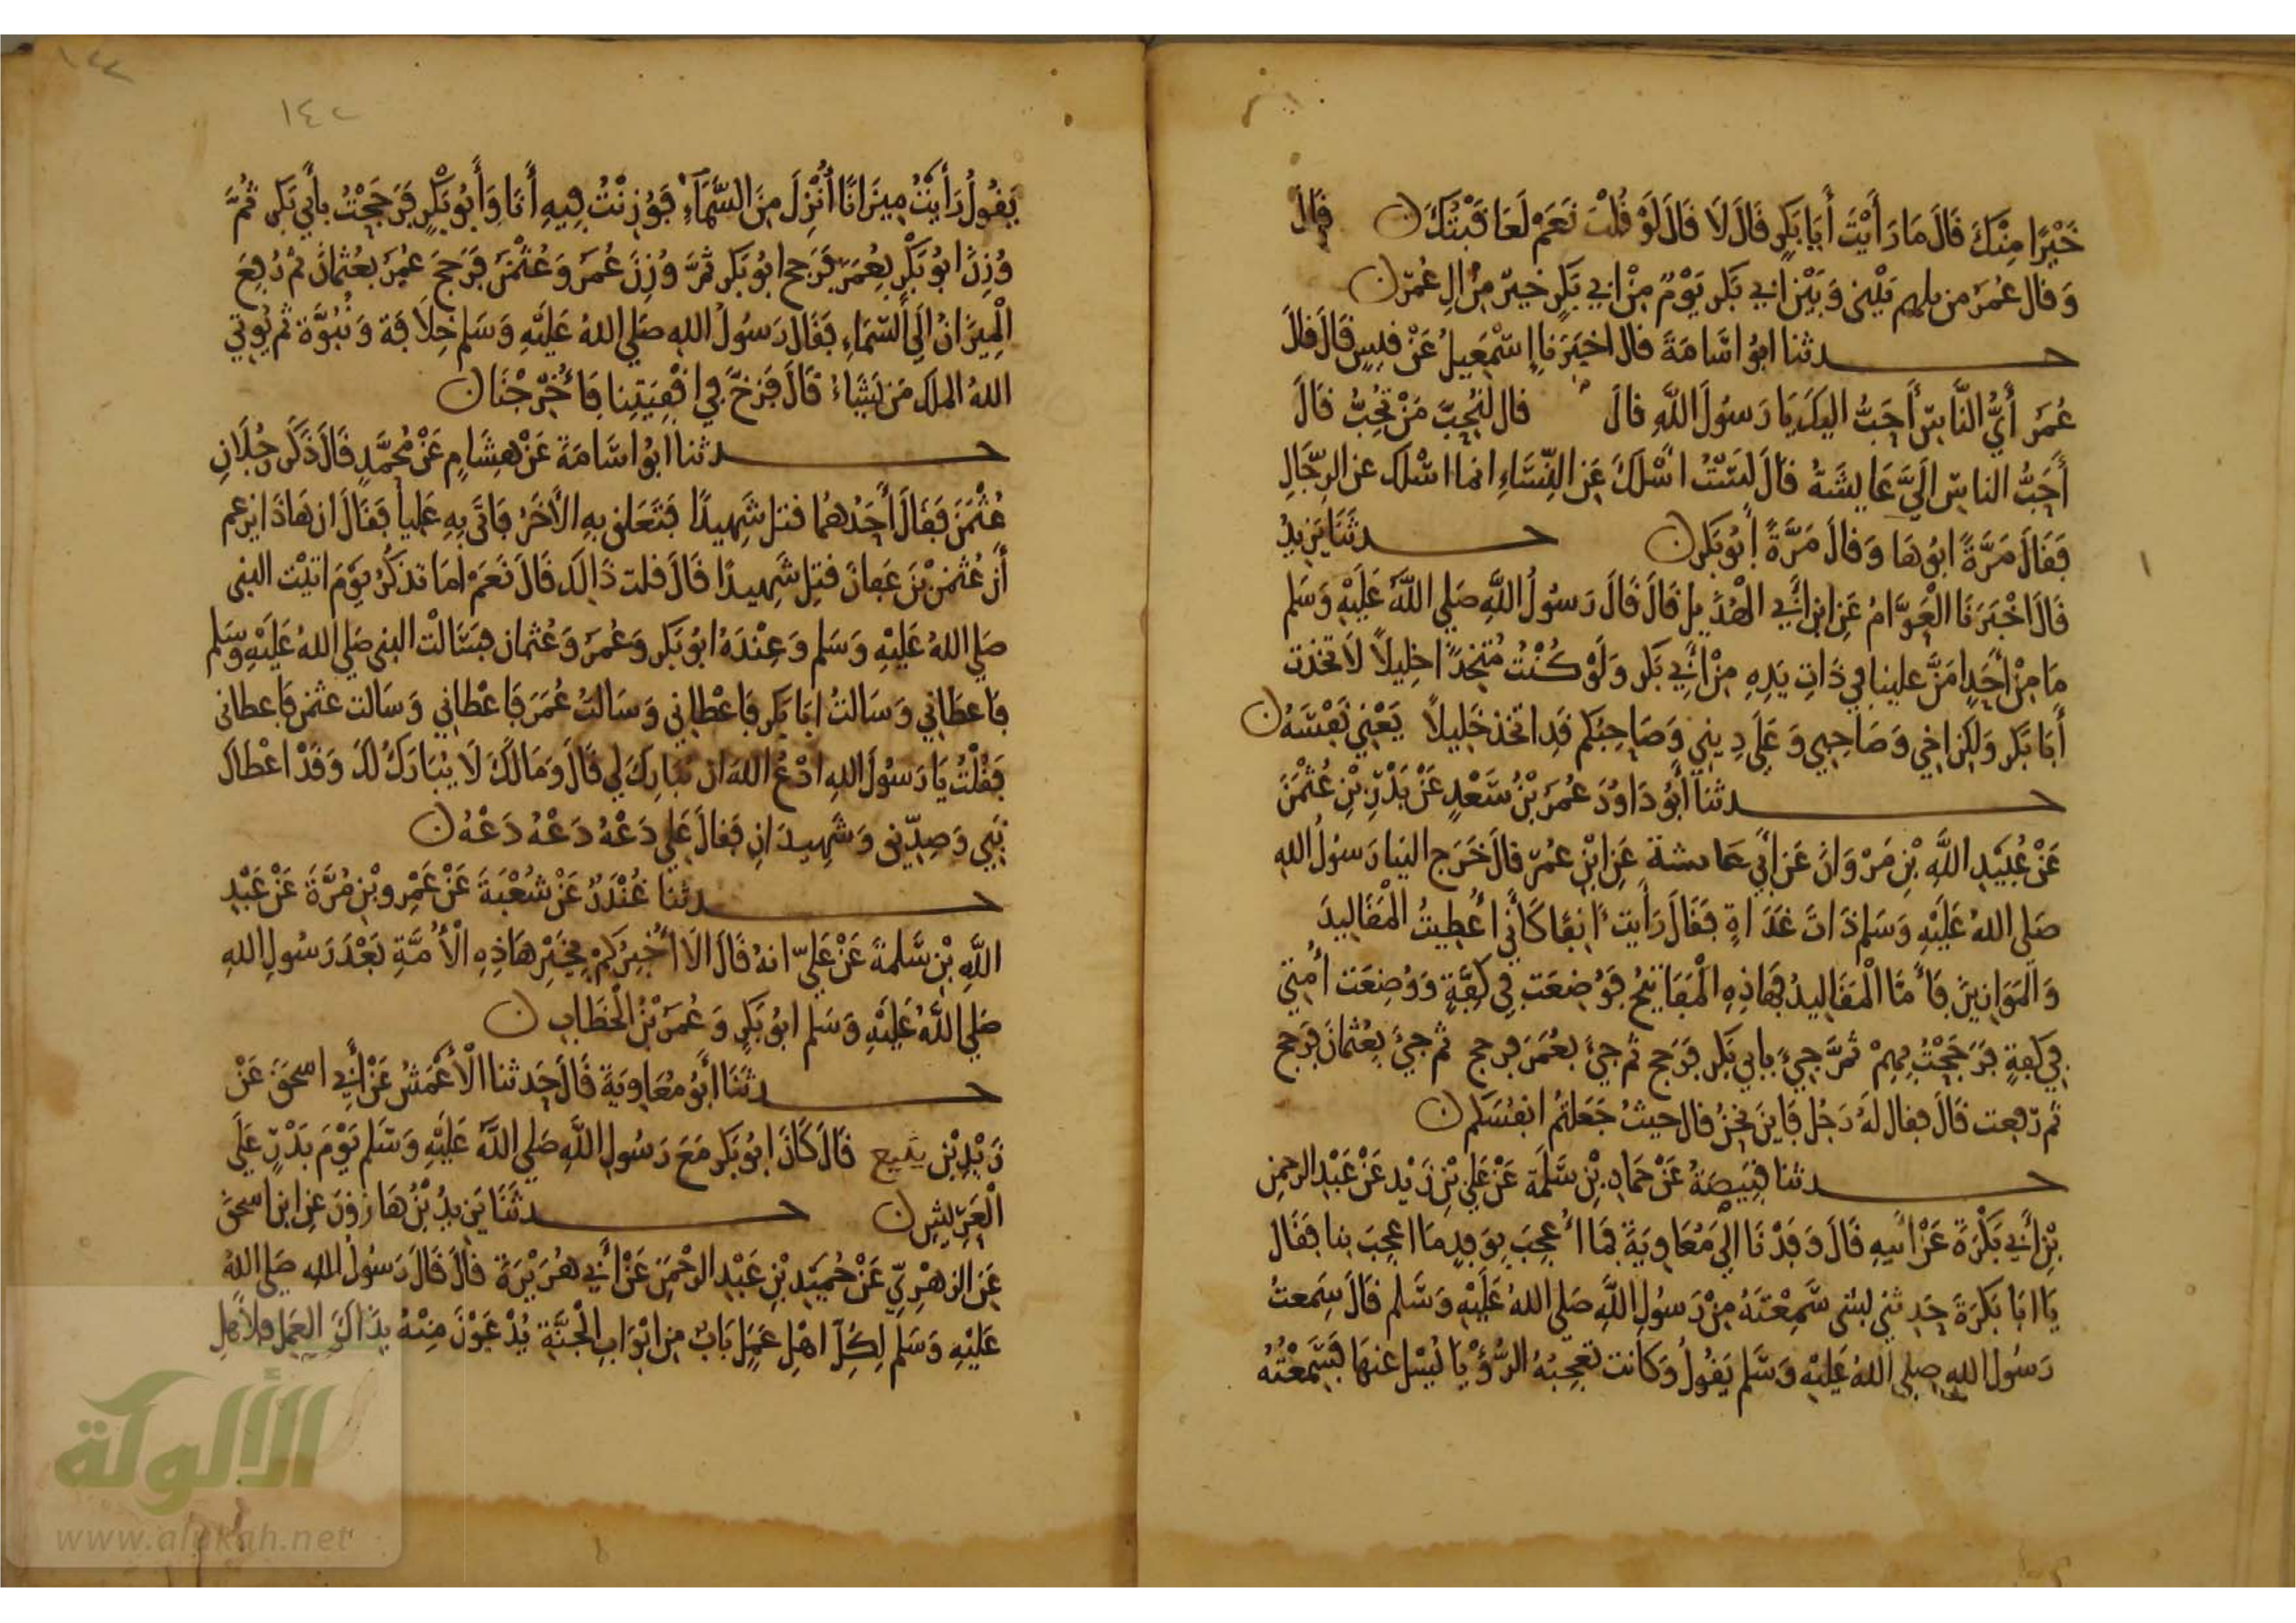 خَيْرًا مِنْكَ قَالَ مَا رَأَيْتَ أَبَا بَكْرٍ قَالَ لَا قَالَ لَوْ قُلْتَ نَعَمْ لَعَاقَبْتُكَ ن قَالَ
وَقَالَ عُمَرُ من يَبْنِى وَبَيْنَ ابِي بَكْر يَوْمٌ مِنْ ابِي بَكْرٍ خَيْرٌ مِنْ الِ عُمَرَ ن
حدثنا ابُو اسَامَةَ قال اخْبَرَنا إِسْمَعِيلُ عَنْ قيسٍ قَالَ قَالَ
عُمَرُ أَيُّ النَّاسِ أَحَبُّ اليكَ يَا رَسُولَ اللَّهِ قالَ قال لِنُحِبَّ مَنْ تُحِبُّ قالَ
أَحَبُّ الناسِ الَيَّ عَايِشَةُ قالَ لَسْتُ اسْلَكَ عَنِ النِّسَاءِ انما اسْلك عن الرِّجَالِ
فَقَالَ مَرَّةً ابُوهَا وَقَالَ مَرَّةً أَبُو بَكر ن حدثَنَا يَزِيدُ
قَالَ اخْبَرَنَا الْعَوَّامُ عَنِ ابن أَبِي الهُدَيل قَالَ قَالَ رَسُولُ اللَّهِ صَلي اللَّهُ عَلَيْهِ وَسَلم
مَا مِنْ أَحَدٍ امَنَّ علينا في ذَاتِ يَدِهِ مِنْ أَبِي بَكر وَلَوْ كُنْتُ مُتَّخِذًا خلِيلًا لاتخذت
أَبَا بَكر وَلكِن اخِي وَصَاحِبِي وَعَلَى دِيني وَصَاحِبُكم قَدِ اتخذ خَلِيلًا يَعْنِي نَفْسَهُ ن
حدثنا أَبُو دَاوُدَ عُمَرُ بْنُ سَعْدٍ عَنْ بَدْرِ بْنِ عُثْمَنَ
عَنْ عُبَيْدِ اللَّهِ بْنِ مَرْوَانَ عَنْ ابِي عَايشة عَنِ ابْنِ عُمَرَ قالَ خَرَج الينا رَسُولُ اللهِ
صَلي اللهُ عَلَيْهِ وَسَلم ذَاتَ غَدَاةٍ فَقَالَ رَأَيت انِفًا كَأَنِّي أُعْطِيتُ الْمَقَالِيدَ
وَالمَوَازِينَ فَأَمَّا الْمَقَالِيدُ فَهَاذِهِ الْمَفَاتِيحُ فَوُضِعَت فِي كِفَّةٍ وَوُضِعَت أُمتِي
فِي كِفةٍ فَرَجَحْتُ بِهِمْ ثمَّ جِيءَ بابي بَكر فَرَجح ثم جِيءَ بعُمَرَ فرجح ثم جِيءَ بِعُثْمانَ فَرَجح
ثم رُفِعت قالَ فقال لَهُ رَجُل فَايْنَ نحْنُ قال حيثُ جَعَلتُم انفُسَكم ن
حدثنا قَبِيصَةُ عَنْ حَمَادِ بْنِ سَلَمَة عَنْ عَلي بْنِ زَيْد عَنْ عَبْدِ الرحمن
بْنِ أَبِي بَكْرَةَ عَنْ ابيهِ قَالَ وَفَدْنَا الي مُعَاوِيَةَ فَمَا أُعْجِبَ بِوَفِدٍ مَا اعجِبَ بنا فَقَال
يَا ابَا بَكْرَةَ حَدِثْني بشى سَمِعْتَهُ مِنْ رَسُولِ اللَّهِ صَلي اللهُ عَلَيْهِ وَسَلم قالَ سَمِعتُ
رَسُول اللهِ صلي اللهُ عَليْهِ وَسَلم يَقُولُ وَكَانت تعْجِبُهُ الرُّؤْيَا يُسْل عنهَا فَسَمِعْتُهُ
١٤٢
يَقُولُ رَأَيْتُ مِيزَانًا أُنْزِلَ مِنَ السَّمَاءِ فَوُزِنْتُ فِيهِ أَنَا وَأَبُو بَكْرٍ فَرَجَحْتُ بأَبِي بَكر ثُمَّ
وُزِنَ ابُو بَكْر بِعُمَرَ فَرَجح ابُو بَكر ثمَّ وُزِنَ عُمَرَ وَعُثْمَنَ فَرَجحَ عُمَرُ بعُثمَانَ ثم رُفِعَ
الْمِيزَانُ الَي السَّمَاءِ فَقَالَ رَسُولُ اللهِ صَلي اللهُ عَلَيْهِ وَسَلم خِلَافَة وَنُبُوَّة ثم يُوتي
اللهُ الملك مَن يَشَاءُ قَالَ فَزخَّ فِي اقْفِيَتِنا فَأُخْرِجْنَا ن
حدثنا ابُو اسَامَةَ عَنْ هِشَامٍ عَنْ مُحَمَّدٍ قَالَ ذَكَرَ رَجُلَانِ
عُثْمَنَ فَقَالَ أَحَدُهُمَا قتل شَهِيدًا فَتَعَلق بهِ الأَخَرُ فَاتَى بِهِ عَلِيا فَقَالَ ان هَاذَا يزعم
أَن عُثْمَن بْنَ عَفانَ قُتِل شَهِيدًا قَالَ قلت ذَالكَ قَالَ نَعَمْ امَا تذكُرُ يَوْمَ اتيْت النبى
صَلي اللهُ عَلَيْهِ وَسَلم وَعِنْدَهُ ابُو بَكر وَعُمَرُ وَعُثمان فسَالْت النبي صَلي اللهُ عَلَيْهِ وَسَلم
فَاعطَانِي وَسَالتُ ابَا بَكر فَاعْطانِي وَسَالتُ عُمَرَ فَاعْطَاني وَسَالت عثمن فَاعطانى
فَقُلْتُ يَا رَسُولَ اللهِ ادْعُ اللهَ ان يُبَارِكَ لِي قَالَ وَمَا لَكَ لَا يُبَارَكُ لَكَ وَقَدْ اعْطَاكَ
نَبِي وَصِدّيق وَشَهِيدَانِ فَقالَ عَلي دَعْهُ دَعْهُ دَعْهُ ن
حدثنا غُنْدَرٌ عَنْ شُعْبَةَ عَنْ عَمْرِو بْنِ مُرَّةَ عَنْ عَبْدِ
اللَّهِ بْنِ سَلمةَ عَنْ عَليّ انهُ قَالَ الَا أُخْبِرُكمْ بِخَيْرِ هَاذِهِ الْأُمَّةِ بَعْدَ رَسُولِ اللهِ
صَلي اللَّهُ عَلَيْهِ وَسَلم ابُو بَكرٍ وَعُمَرَ بْنُ الْخَطَابِ ن
حدثَنَا أَبُو مُعَاوِيَةَ قَالَ حَدثنا الْأَعْمَشُ عَنْ أَبِي اسحَقَ عَنْ
زَيْدِ بْنِ يثيع قَالَ كَانَ ابُو بَكر مَعَ رَسُولِ اللَّهِ صَلي اللَّهُ عَلَيْهِ وَسَلم يَوْمَ بَدْرٍ عَلَى
الْعَرِيشِ ن حدثَنَا يَزِيدُ بْنُ هَارُونَ عَنِ ابن اسحقَ
عَنِ الزهْرِيّ عَنْ حُمَيْدِ بْنِ عَبْدِ الرحْمَن عَنْ أَبِي هُرَيْرَة قالَ قَالَ رَسُولُ اللهِ صَلي اللهُ
عَلَيْهِ وَسَلم لِكُلِّ اهْلِ عَمَلٍ بَابٌ مِن ابْوَابِ الْجَنَّةِ يُدْعَوْنَ مِنْهُ بِذَالكَ العَمَلِ فلأَهلِ
الألوكة
www.alukah.net